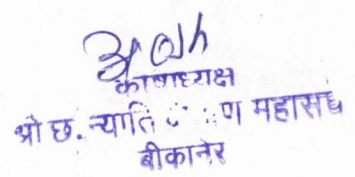 कोषाध्यक्ष
श्री छ. न्याति महासंघ
बीकानेर